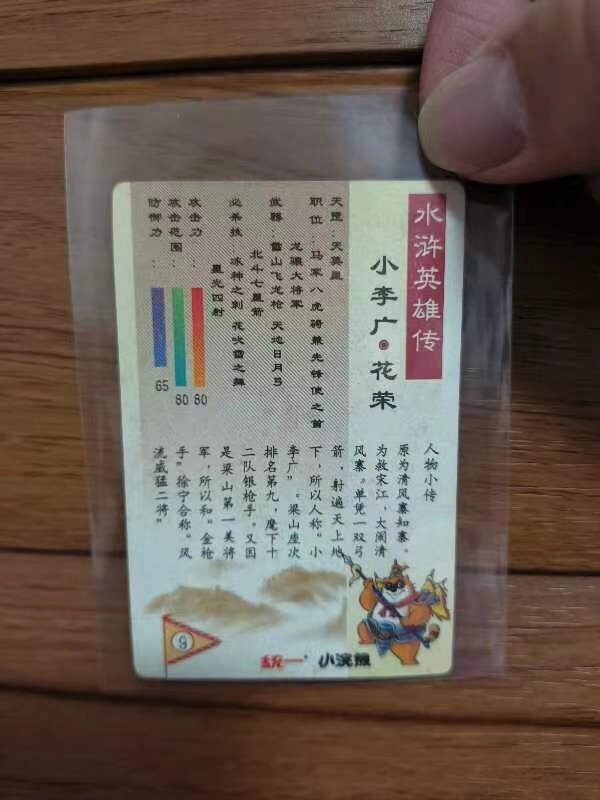 水浒英雄传
小李广·花荣
天罡：天英星
职位：马军八虎骑兼先锋使之首
龙骧大将军
武器：雪山飞龙枪 天地日月弓
北斗七星箭
必杀技：冰神之刺 花吹雪之舞
星光四射
攻击力：
攻击范围：
防御力：
80
80
65
人物小传
原为清风寨知寨。
为救宋江，大闹清
风寨。单凭一双弓
箭，射遍天上地
下，所以人称“小
李广”。梁山座次
排名第九，麾下十
二队银枪手。又因
是梁山第一美将
军，所以和。金枪
手”徐宁合称“风
流威猛二将”
9
统一·小浣熊